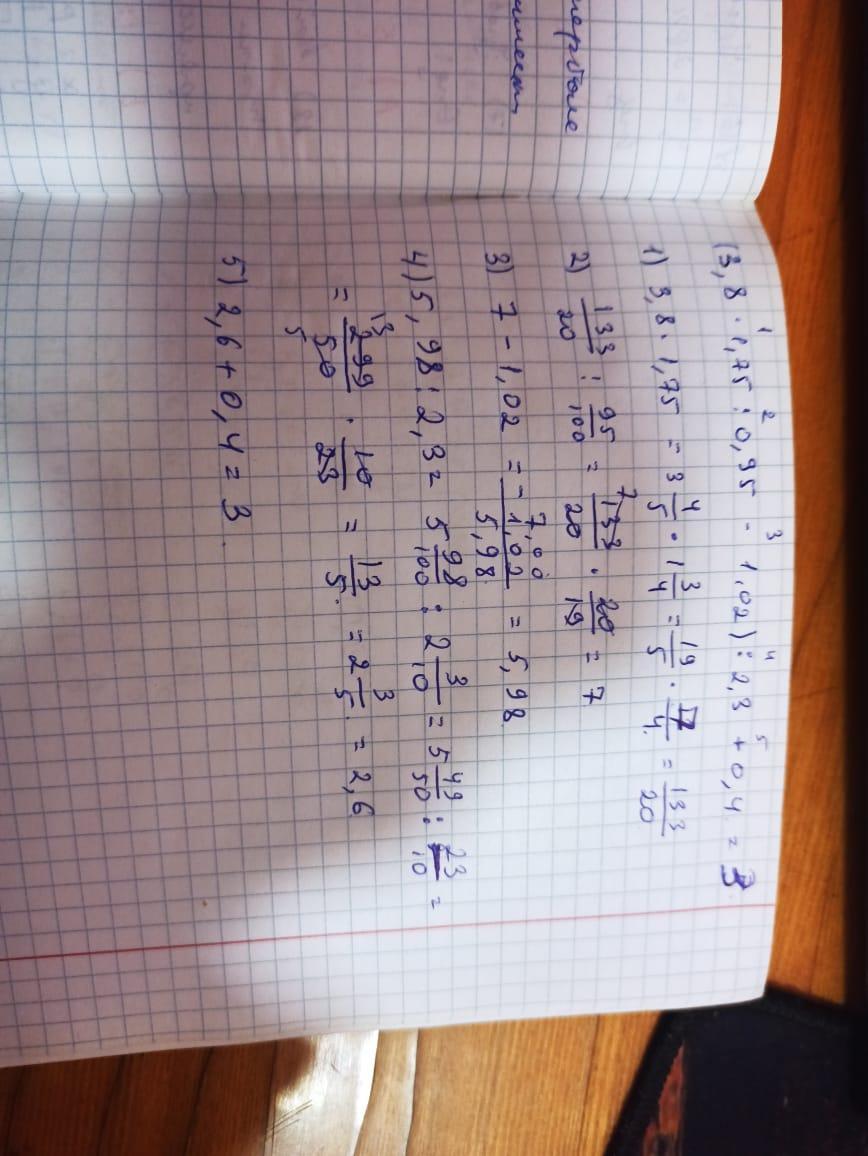 (3,8 · 1,75 : 0,95 - 1,02) : 2,3 + 0,4 = 3
1 2 3 4 5
1) 3,8 · 1,75 = 3 4/5 · 1 3/4 = 19/5 · 7/4 = 133/20
2) 133/20 : 95/100 = 133/20 · 20/19 = 7
7
3) 7 - 1,02 = - 7,00 1,02 5,98 = 5,98
4) 5,98 : 2,3 = 5 98/100 : 2 3/10 = 5 49/50 : 23/10 =
= 299/50 · 10/23 = 13/5 = 2 3/5 = 2,6
13
5
5) 2,6 + 0,4 = 3